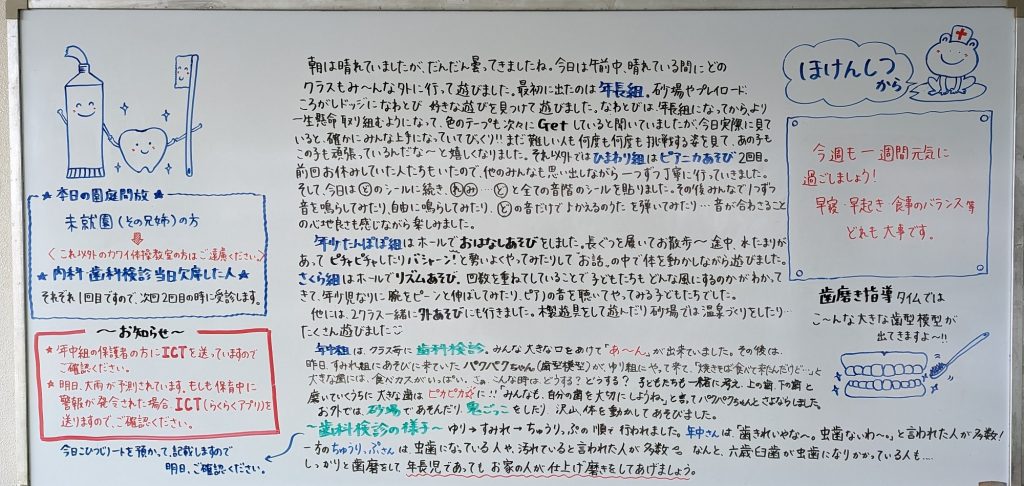 ★本日の園庭開放★
未就園(その兄姉)の方
〈これ以外のカワイ体操教室の方はご遠慮ください。〉
★内科・歯科検診当日欠席した人★
それぞれ1回目ですので、次回2回目の時に受診します。
～お知らせ～
★年中組の保護者の方にICTを送っていますので
ご確認ください。
★明日、大雨が予測されています。もしも保育中に
警報が発令された場合、ICT(らくらくアプリ)を
送りますので、ご確認ください。
今日こひつじノートを預かって、記載しますので
明日、ご確認ください。
朝は晴れていましたが、だんだん曇ってきましたね。今日は午前中、晴れている間にどの
クラスもみ～んな外に行って遊びました。最初に出たのは年長組。砂場やプレイロード
ころがしドッジになわとび 好きな遊びを見つけて遊びました。なわとびは、年長組になってから、より
一生懸命取り組むようになって、色のテープも次々にGetしていると聞いていましたが、今日実際に見て
いると、確かにみんな上手になっていてびっくり!!まだ難しい人も何度も何度も挑戦する姿を見て、あの子も
この子も頑張っているんだな～と嬉しくなりました。それ以外ではひまわり組はピアニカあそび2回目。
前回お休みしていた人たちもいたので、他のみんなも思い出しながら一つずつ丁寧に行っていきました。
そして、今日はⓓのシールに続き、れみ…どと全ての音階のシールを貼りました。その後みんなで1つずつ
音を鳴らしてみたり、自由に鳴らしてみたり、どの音だけでよかえるのうたを弾いてみたり…音が合わさること
の心地良さも感じながら楽しみました。
年少たんぽぽ組はホールでおはなしあそびをしました。長ぐつを履いてお散歩～途中、水たまりが
あってピチャピチャしたりバシャーン!と勢いよくやってみたりして「お話」の中で体を動かしながら遊びました。
さくら組はホールでリズムあそび。回数を重ねていしていることで子どもたちもどんな風にするのかがわかって
きて、年少児なりに腕をピーンと伸ばしてみたり、ピアノの音を聴いてやってみる子どもたちでした。
他には、2クラス一緒に外あそびにも行きました。木製遊具をして遊んだり砂場では温泉づくりをしたり…
たくさん遊びました
年中組は、クラス毎に歯科検診。みんな大きな口をあけて「あ～ん」が出来ていました。その後は、
昨日、すみれ組にあそびに来ていたパクパクちゃん(歯型模型)が、ゆり組にやって来て、「焼きそば食べて来たんだけど…」と
大きな歯には、食べカスがいっぱい。さぁ、こんな時は、どうする?どうする? 子どもたちも一緒に考え、上の歯、下の歯と
磨いていくうちに大きな歯はピカピカに!!「みんなも、自分の歯を大切にしようね。」と言ってパクパクちゃんとさよならしました。
お外では、砂場であそんだり、鬼ごっこをしたり、沢山、体を動かしてあそびました。
～歯科検診の様子～ ゆり→すみれ→ちゅうりっぷの順で行われました。年中さんは、「歯きれいやな～。虫歯ないわ～。」と言われた人が多数!
一方のちゅうりっぷさんは、虫歯になっている人や、汚れていると言われた人が多数 なんと、六歳臼歯が虫歯になりかかっている人も....
しっかりと歯磨をして年長児であってもお家の人が仕上げ磨きをしてあげましょう。
ほけんしつ
から
今週も一週間元気に
過ごしましょう!
早寝・早起き・食事のバランス等
どれも大事です。
歯磨き指導タイムでは
こ～んな大きな歯型模型が
出てきますよ～!!